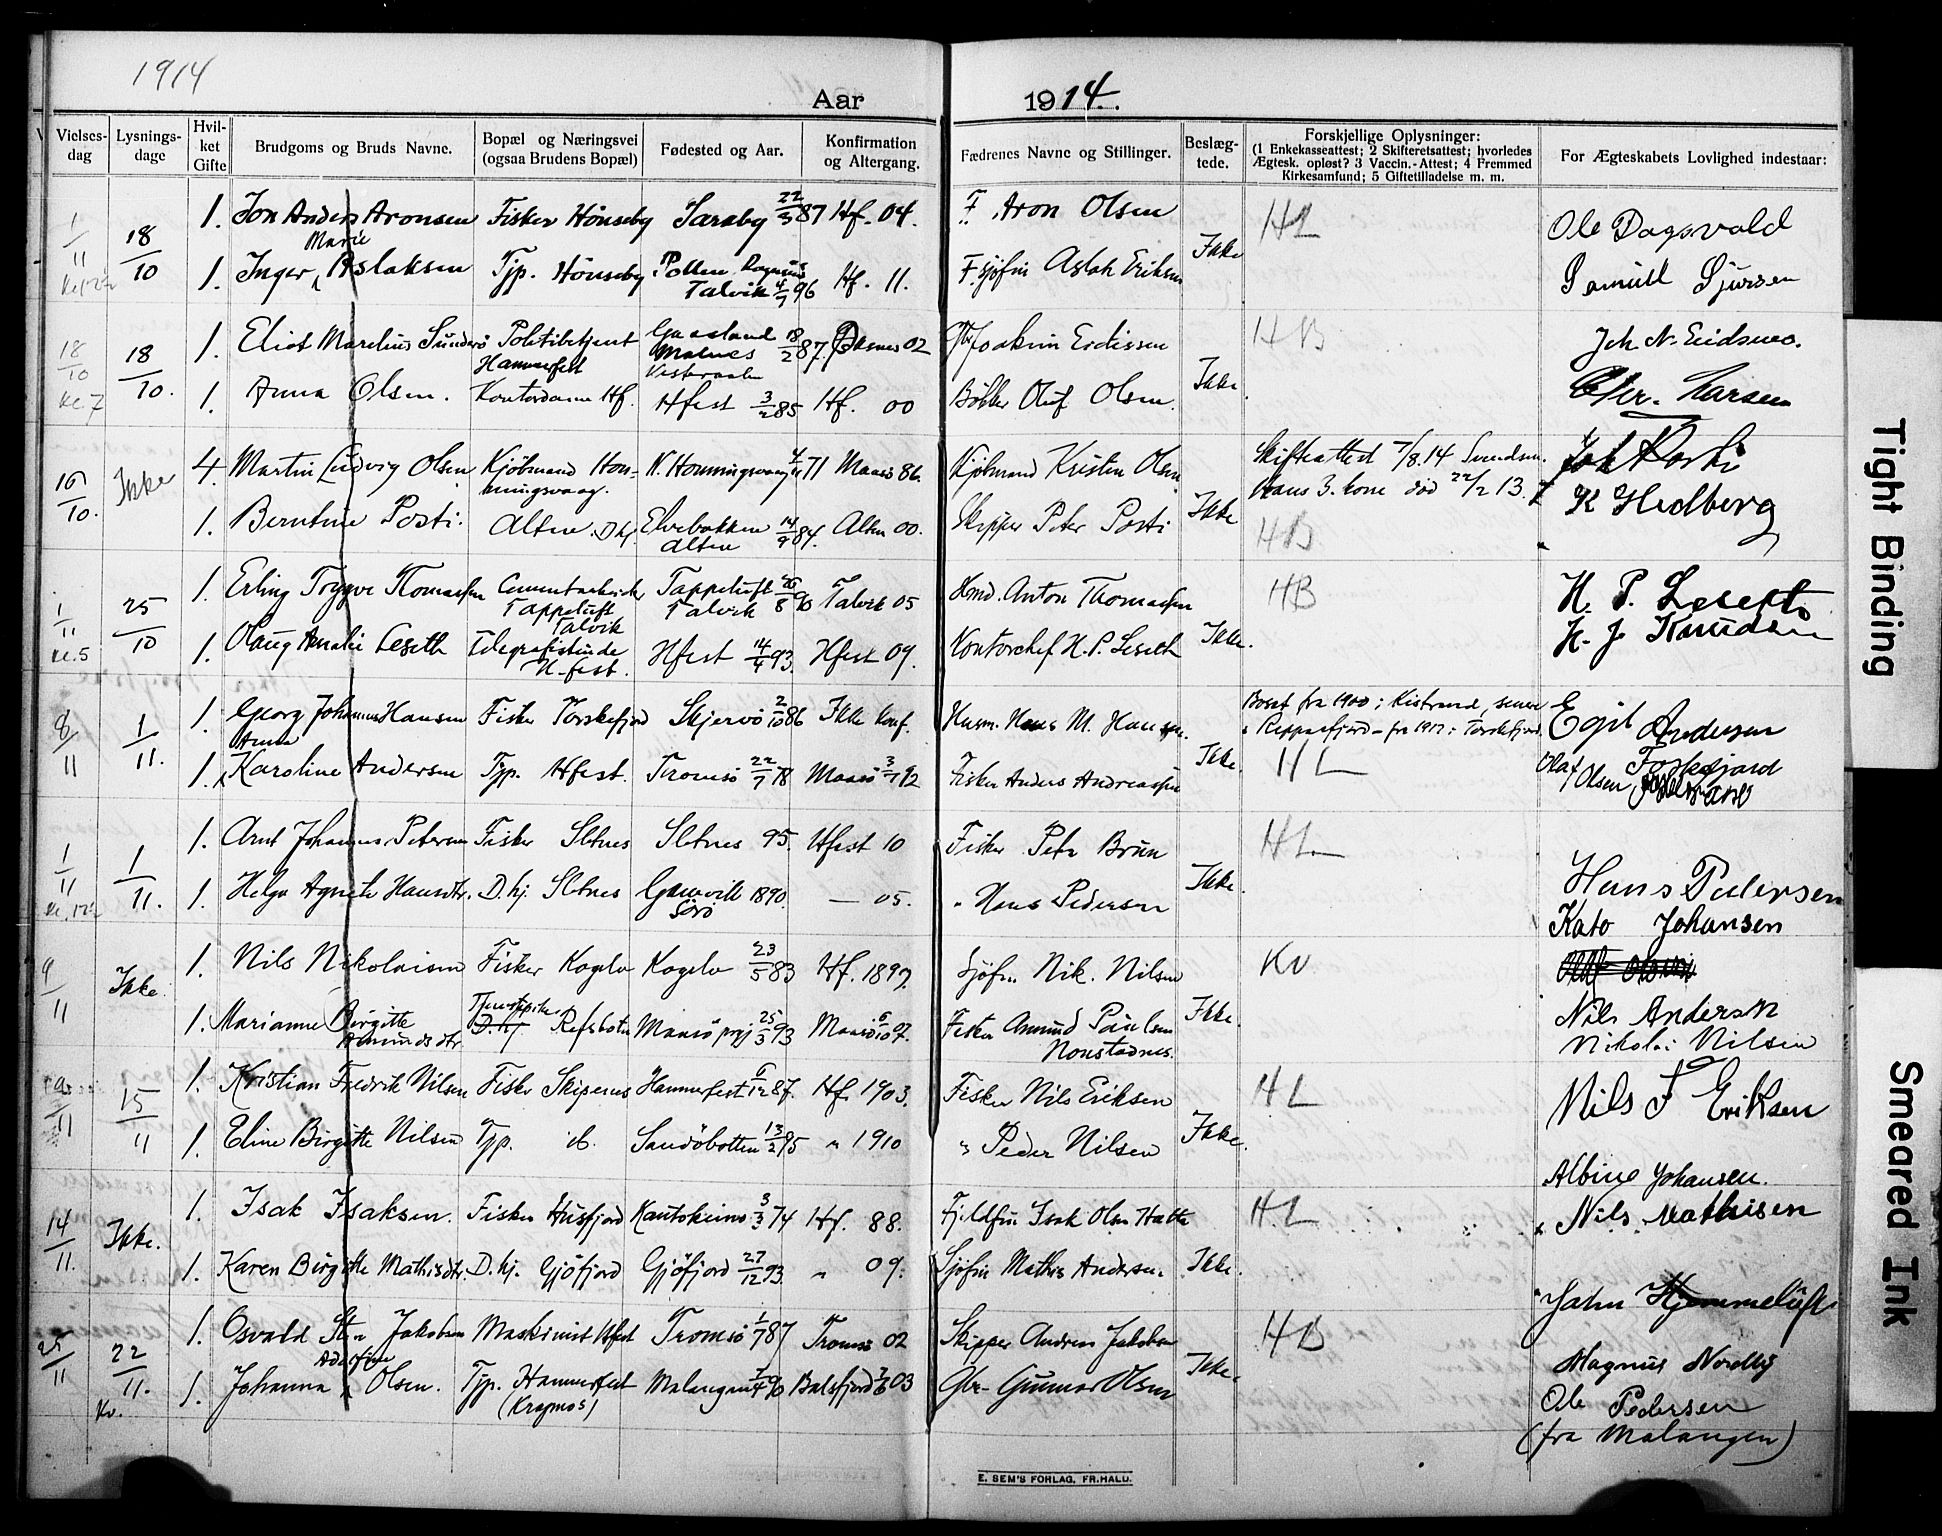 1914
Aar 1914.
Vielses-dag Lysnings-dage Hvil-ket Gifte Brudgoms og Bruds Navne. Bopæl og Næringsvei (ogsaa Brudens Bopæl) Fødested og Aar. Konfirmation og Altergang. Fædrenes Navne og Stillinger. Beslæg-tede. Forskjellige Oplysninger: (1 Enkekasseattest; 2 Skifteretsattest; hvorledes Ægtesk. opløst? 3 Vaccin.-Attest; 4 Fremmed Kirkesamfund; 5 Giftetilladelse m. m. For Ægteskabets Lovlighed indestaar:
1/11 18/10 1. Jon Anders Aronsen Fisker Hönseby Saraby 22/3 87 Hf. 04. F. Aron Olsen Ikke HL Ole Dagsvold
1. Inger Marie Aslaksen Tjp. Hönseby Pollen Talvik 4/7 96 Hf. 11. F. sjöfin Aslak Eriksen Samuel Sjursen
18/10 18/10. 1. Eliot Marelius Sunderö Politibetjent Hammerfest Gaasland Malnes Vesteraalen 18/2 87. Öksnes 02 Joakim Erdissen Ikke HB Joh. N. Eidsmo.
1. Anna Olsen. Kontordame Hf. Hfest 3/2 85 Hf. 00 Böbker Oluf Olsen. Chr. Larsen
16/10. Ikke 4. Martin Ludvig Olsen Kjöbmand Hon-ningsvaag. N. Honningsvaag 71 Maasö 86. Kjöbmand Kristen Olsen Ikke Skifteattest 7/8.14 Svendsen.
hans 3. kone död 22/2 13. HB Joh Posti
1. Berntine Posti. Alten. D hj. Elvebakken Alten 14/9 84. Alten 00. Skipper Peter Posti K Hedberg
1/11 Kl. 5 25/10 1. Erling Trygve Thomassen Cementarbeider Tappeluft Talvik Tappeluft Talvik 8 90 Talvik 05 Hmd. Anton Thomassen Ikke. HB H. P. Leseth
1. Olaug Amalie Leseth Telegrafistinde H-fest. Hfest 14/4 93. Hfest 09. Kontorchef H. P. Leseth H. J. Knudsen
8/11 1/11. 1. Georg Johannes Hansen Fisker Torskefjord Skjervö 2/10 86 Ikke konf. Husm. Hans M. Hansen. Ikke. Boset fra 1900 i Kistrand, senere
i Repparfjord - fra 1912 i Torskefjord. HL Egil Andersen
1. Anna Karoline Andersen Tjp. Hfest. Tromsö 22/7 78 Maasö 3/7 92 Fisker Anders Andreassen Torskfjord
Olaf Olsen,
1/11 1/11. 1. Arnt Johannes Petersen Fisker Sletnes Sletnes 95. Hfest 10 Fisker Petr Brun Ikke. HL Hans Pedersen
1. Helga Agnete Hansdtr. D. hj. Sletnes Gaasvik Sörö 1890. — 05. " Hans Pedersen Kato Johansen
9/11 Ikke. 1. Nils Nikolaisen Fisker Kogelv Kogelv 23/5 83 Hf. 1897. Sjöfin. Nik. Nilsen Ikke. Kv Nils Andersen
1. Marianne Birgitte Amundsdtr. Tjenestepike Refsbotn Maasö prgj 25/3 93 Maasö 6/10 07. Fisker Amund Paulsen Nonstadnes. Nikolai Nilsen
11 15/11 1. Kristian Fredrik Nilsen Fisker Skipernes Hammerfest 6/12 87. Hf. 1903. Fisker Nils Eriksen Ikke. HL Nils F Eriksen
1. Eline Birgitte Nilsen Tjp. ib. Sandöbotten 13/2 95 " 1910 " Peder Nilsen Albine Johansen.
14/11. Ikke. 1. Isak Isaksen. Fisker Husfjord Kautokeino 3/3 74 Hf. 88. Fjeldfin Isak Olsen Hætta Ikke. HL Nils Mathisen
1. Karen Birgitte Mathisdtr. D. hj. Gjöfjord Gjöfjord 27/12 93. " 09. Sjöfin Mathis Andersen. John Hjemmeluft
25/11 22/11. Kv. 1. Osvald Sten Jakobsen Maskinist Hfest Tromsö 1/7 87 Tromsö 02 Skipper Andreas Jakobsen Ikke. HB Magnus Nordby
1. Johanna Adolfine Olsen. Tjp. Hammerfest (Kragnes) Malangen 7/4 90 Balsfjord 03 Gbr. Gunnar Olsen Ole Pedersen
(fra Malangen)
E. SEM'S FORLAG, FR.HALD.
Tight Binding
Smeared Ink